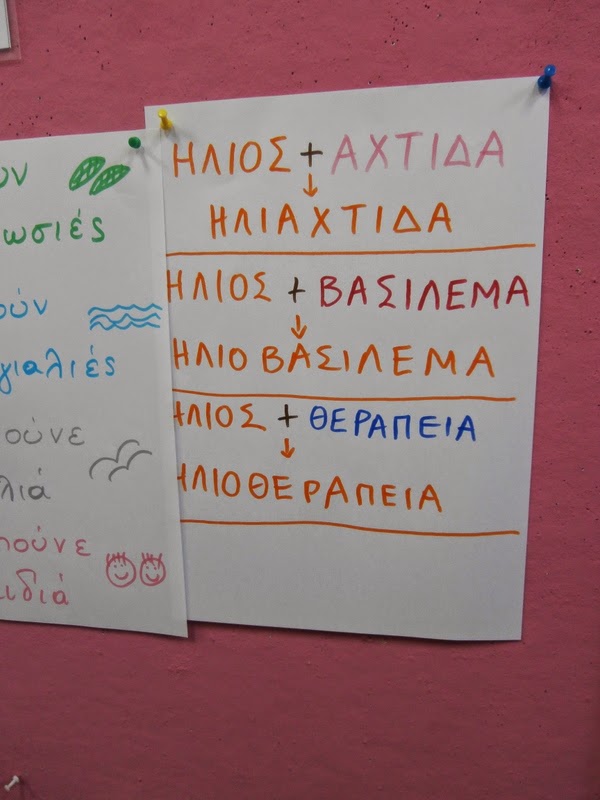 ωσιές
ούν
γιαλιές
ούνε
λιά
ούνε
ιδιά
ΗΛΙΟΣ + ΑΧΤΙΔΑ
ΗΛΙΑΧΤΙΔΑ
ΗΛΙΟΣ + ΒΑΣΙΛΕΜΑ
ΗΛΙΟ ΒΑΣΙΛΕΜΑ
ΗΛΙΟΣ + ΘΕΡΑΠΕΙΑ
ΗΛΙΟΘΕΡΑΠΕΙΑ